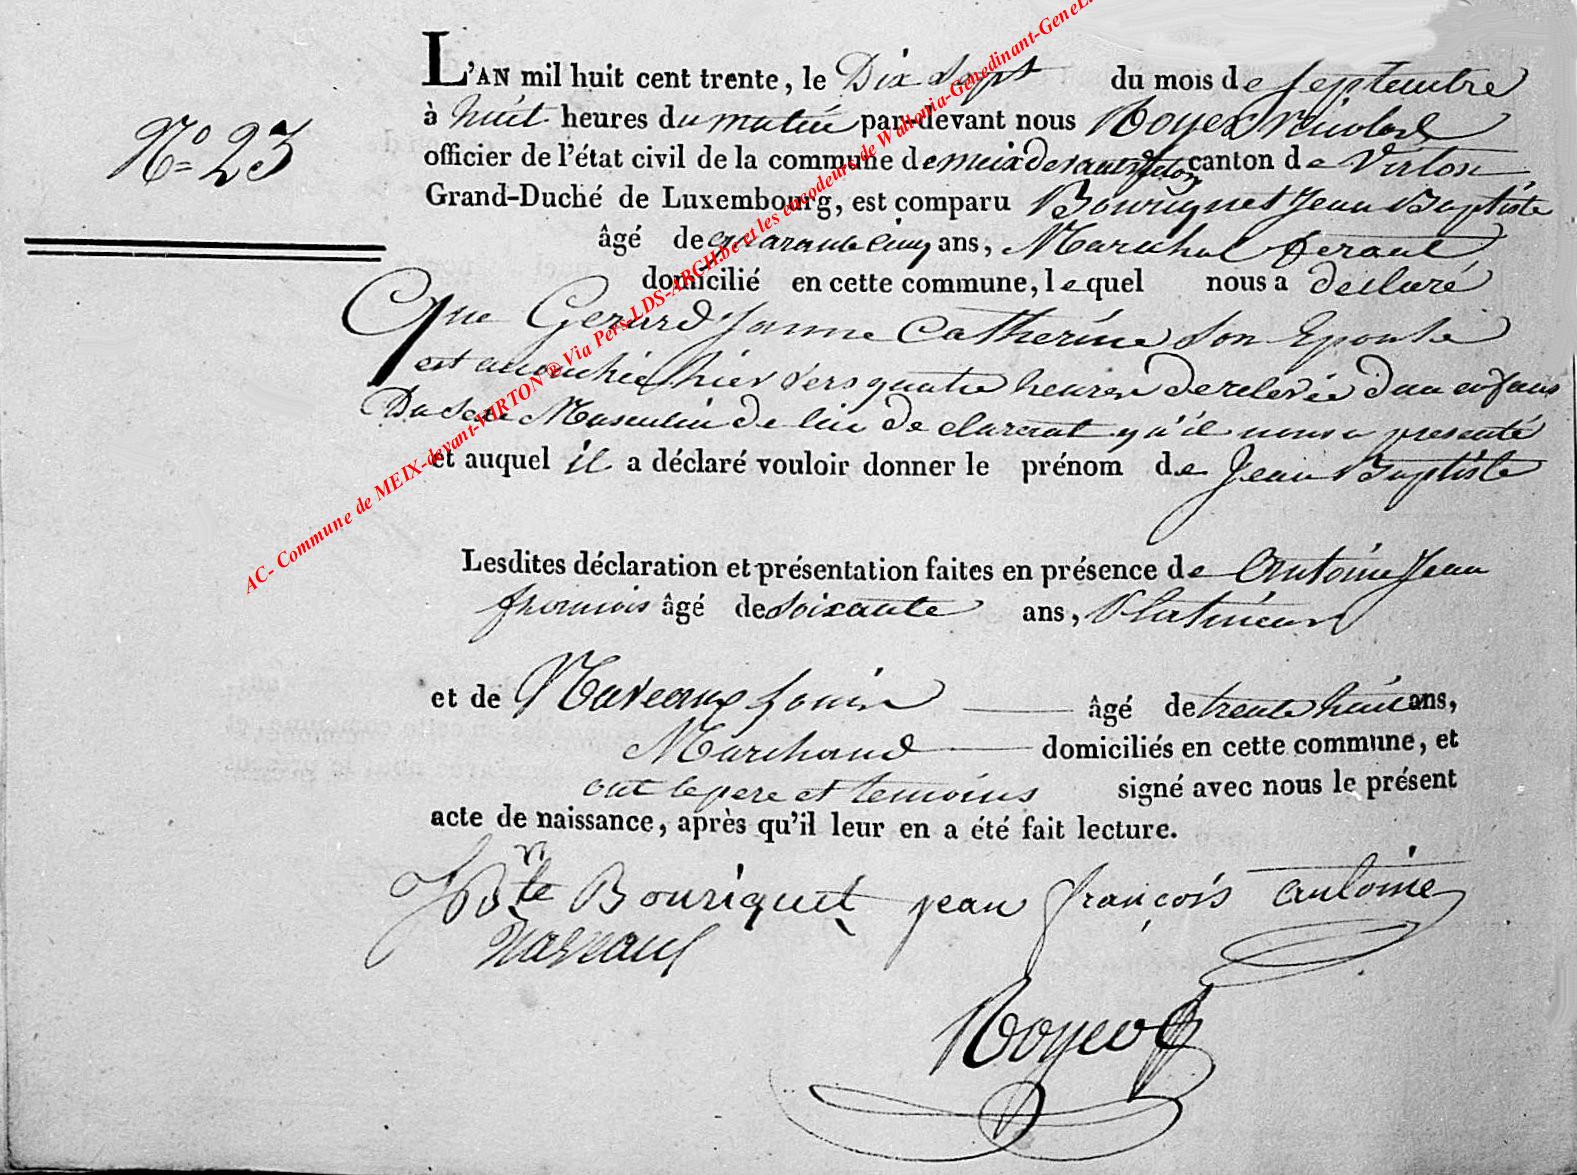 L'AN mil huit cent trente, le Dix Sept du mois de Septembre
N° 23
à huit heures du matin par-devant nous Royer Nicolas
officier de l'état civil de la commune de meix devant Virton canton de Virton
Grand-Duché de Luxembourg, est comparu Bouriquet Jean Baptiste
âgé de quarante cinq ans, Marechal ferant
domicilié en cette commune, lequel nous a declaré
Que Gerard Jeanne Catherine Son Epouse
est accouchée hier vers quatre heures de relevée d'un enfans
Du Sexe Masculin de lui declarant qu'il nous a presenté
et auquel il a déclaré vouloir donner le prénom de Jean Baptiste
Lesdites déclaration et présentation faites en présence de Antoine Jean
françois âgé de soixante ans, Platineur
et de Naveaux Louis âgé de trente huit ans,
Marchand domiciliés en cette commune, et
ont le pere et temoins signé avec nous le présent
acte de naissance, après qu'il leur en a été fait lecture.
J n Bte Bouriquet jean françois antoine
Royer
AC- Commune de MEIX-devant-VIRTON ® Via Pers-LDS-ARCH.be et les encodeurs de Wallonia-Genedinant-GeneL